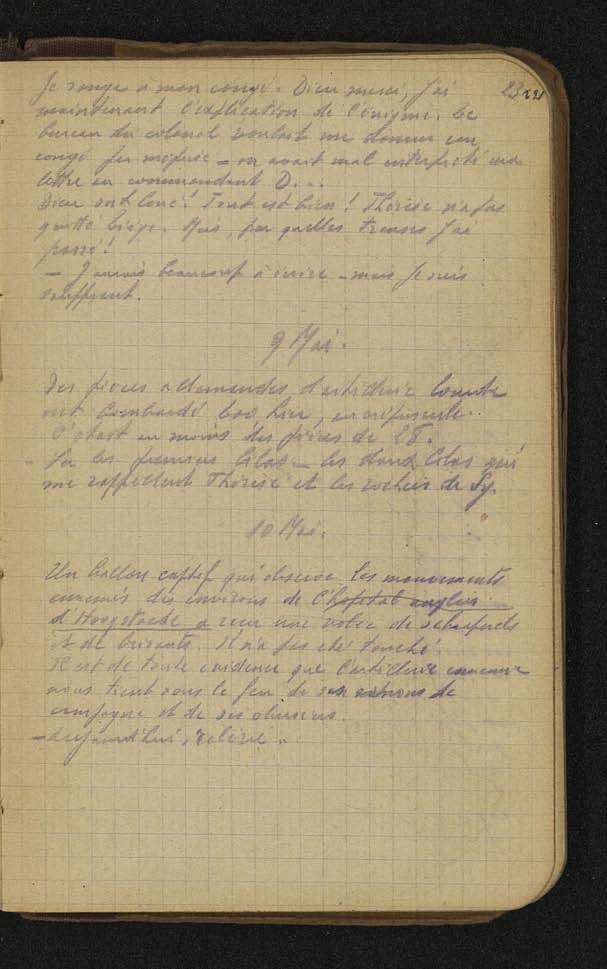 Je songe à mon congé. Dieu merci, j'ai 23
maintenant l'explication de l'énigme. Le
bureau du colonel voulait me donner un
congé par mégarde – on avait mal interprété ma
lettre au commandant D...
Dieu soit loué! Tout est bien! Thérèse n'a pas
quitté Liège. Mais, par quelles transes j'ai
passé!
– J'aurais beaucoup à écrire – mais je suis
souffrant.
9 Mai.
Des pièces allemandes d'artillerie lourde
ont bombardé Loo hier, au crépuscule.
C'était au moins des pièces de 28.
Vu les premiers lilas – les doux lilas qui
me rappellent Thérèse et les rochers de Sy.
10 Mai.
Un ballon captif qui observe les mouvements
ennemis des environs de l'hôpital anglais
d'Hoogstaede a reçu une volée de schrapnels
et de brisants. Il n'a pas été touché.
Il est de toute évidence que l'artillerie ennemie
nous tient sous le feu de ses canons de
campagne et de ses obusiers.
– Aujourd'hui, relève.